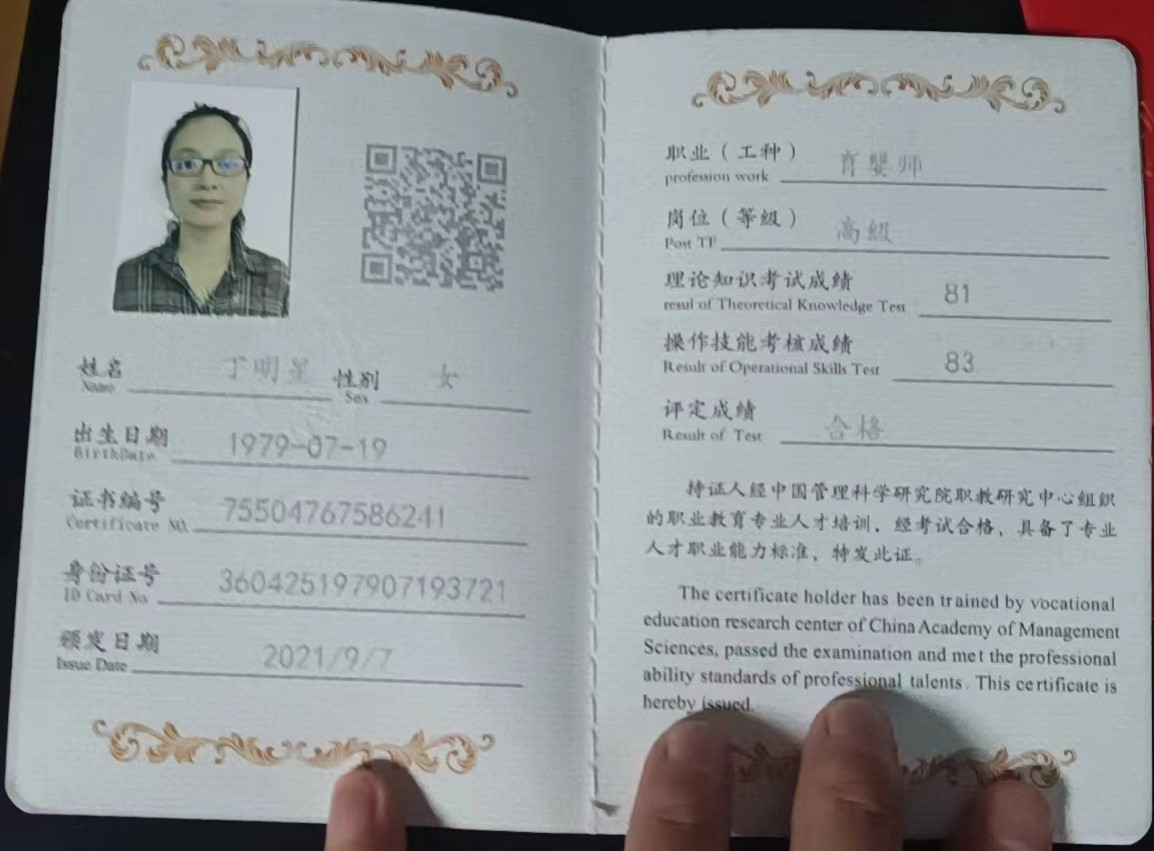 姓名 丁明星 性别 女
Name Sex
出生日期 1979-07-19
BirthDate
证书编号 75504767586241
Certificate NO.
身份证号 360425197907193721
ID Card No
颁发日期 2021/9/7
Issue Date
职业（工种） 育婴师
profession work
岗位（等级） 高级
Post TP
理论知识考试成绩 81
resul of Theoretical Knowledge Test
操作技能考核成绩 83
Result of Operational Skills Test
评定成绩 合格
Result of Test
持证人经中国管理科学研究院职教研究中心组织
的职业教育专业人才培训，经考试合格，具备了专业
人才职业能力标准，特发此证。
The certificate holder has been trained by vocational
education research center of China Academy of Management
Sciences, passed the examination and met the professional
ability standards of professional talents. This certificate is
hereby issued.